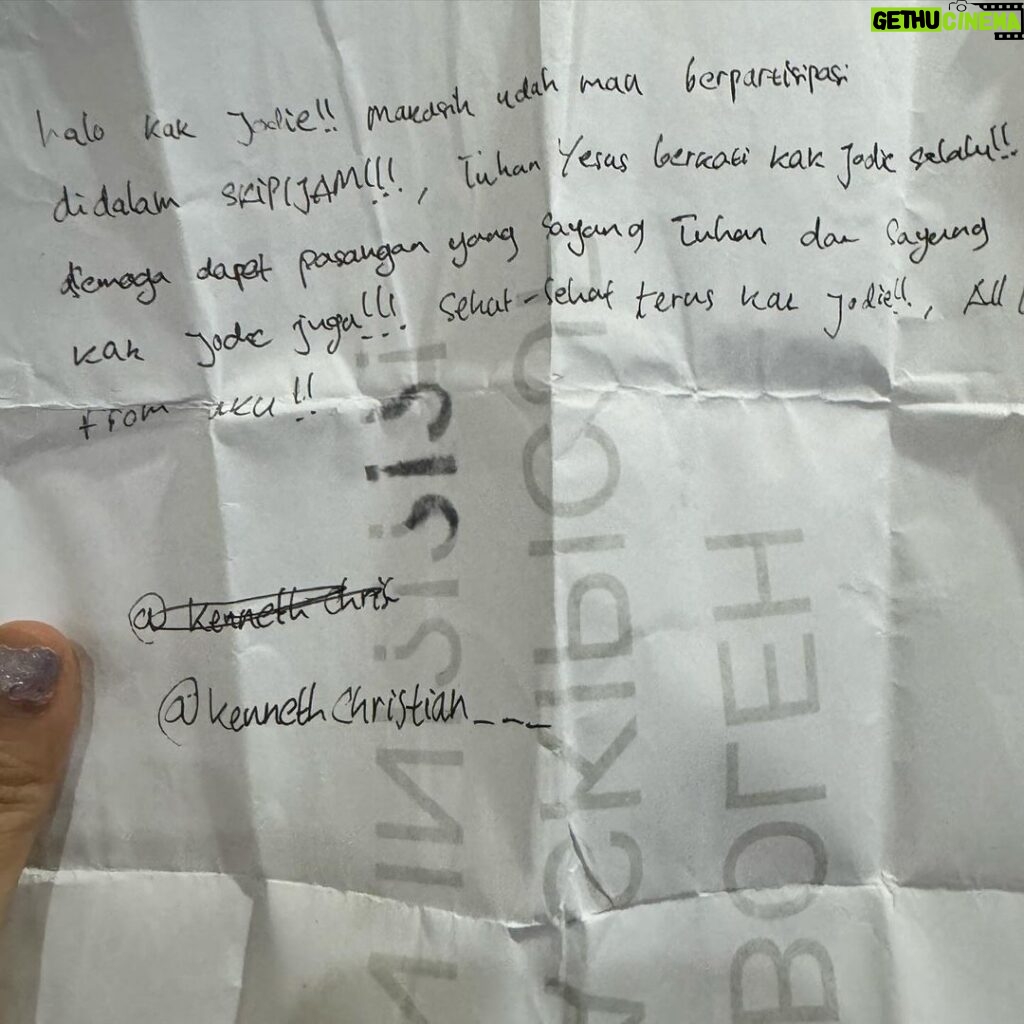 GETHUCINEMA
halo kak Jodie!! makasih udah mau berpartisipasi
didalam SKIPIJAM!!!, Tuhan Yesus berkati kak Jodie selalu!!
semoga dapet pasangan yang sayang Tuhan dan sayang
kak Jodie juga!!! Sehat-sehat terus kak Jodie!!, All
from aku!!
@kenneth Chris
@kennethChristian_ _ _ _
BOLEH